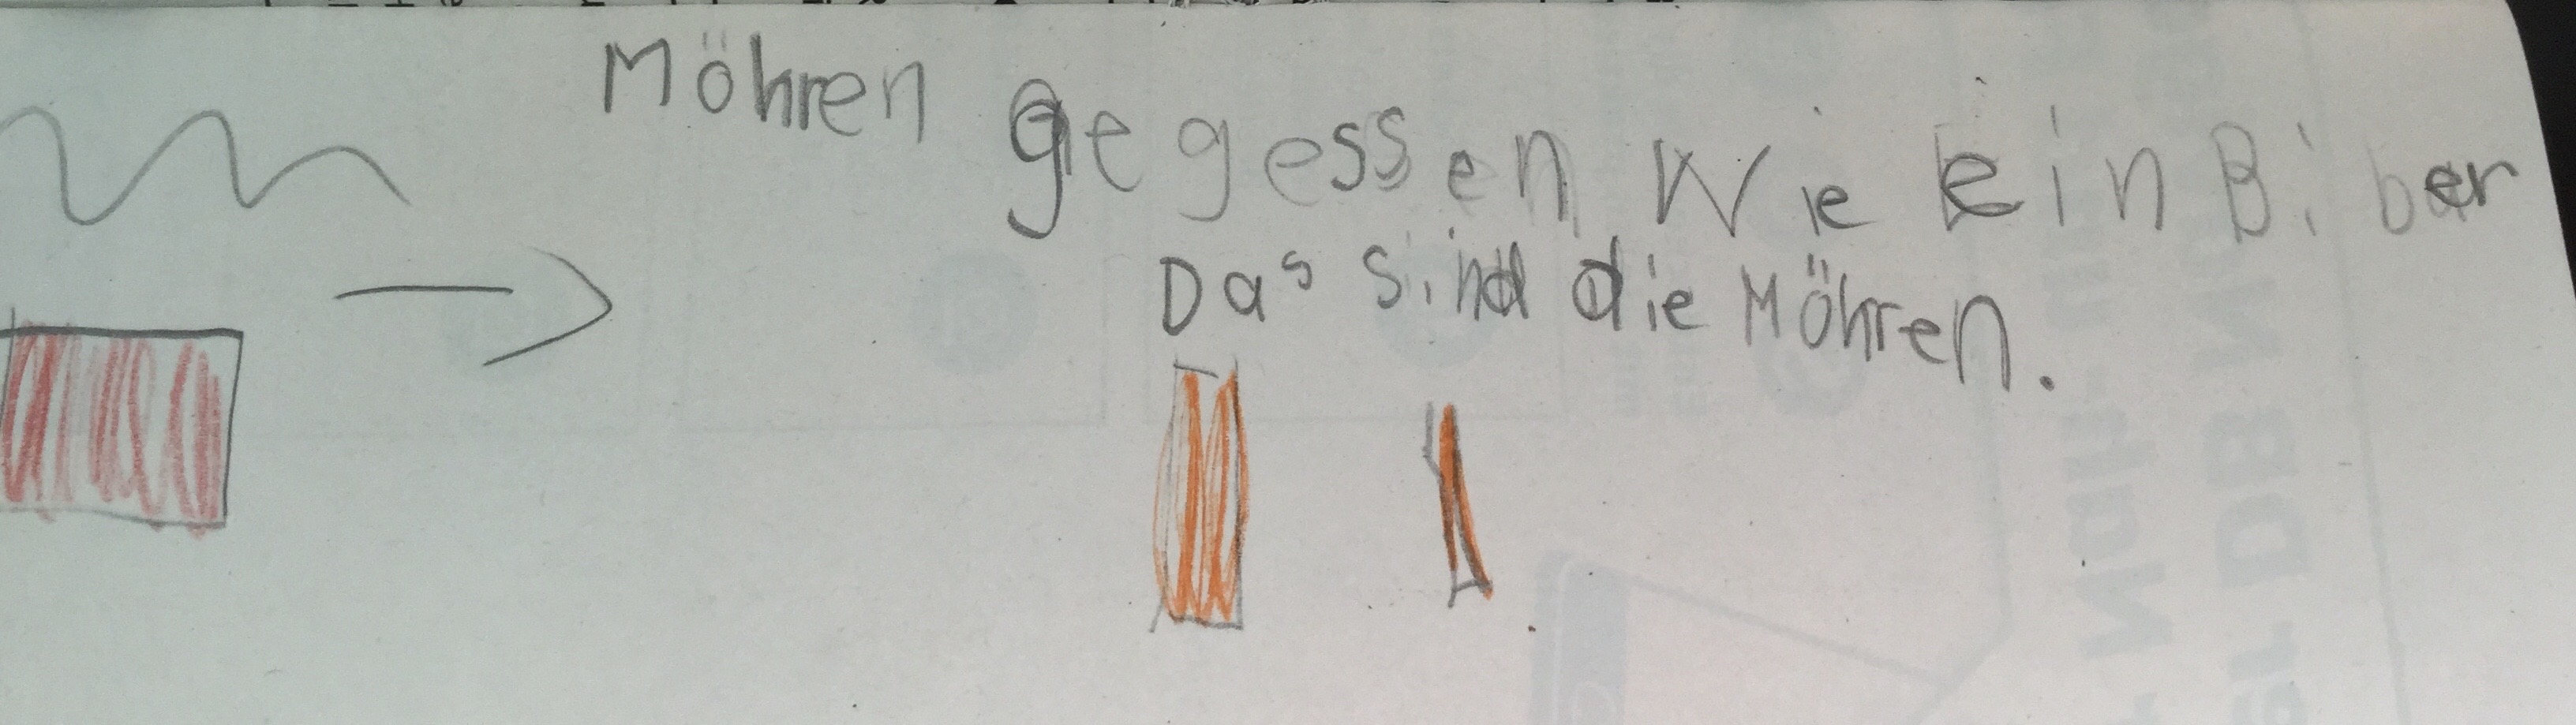 Möhren gegessen Wie ein Biber
Das sind die Möhren.